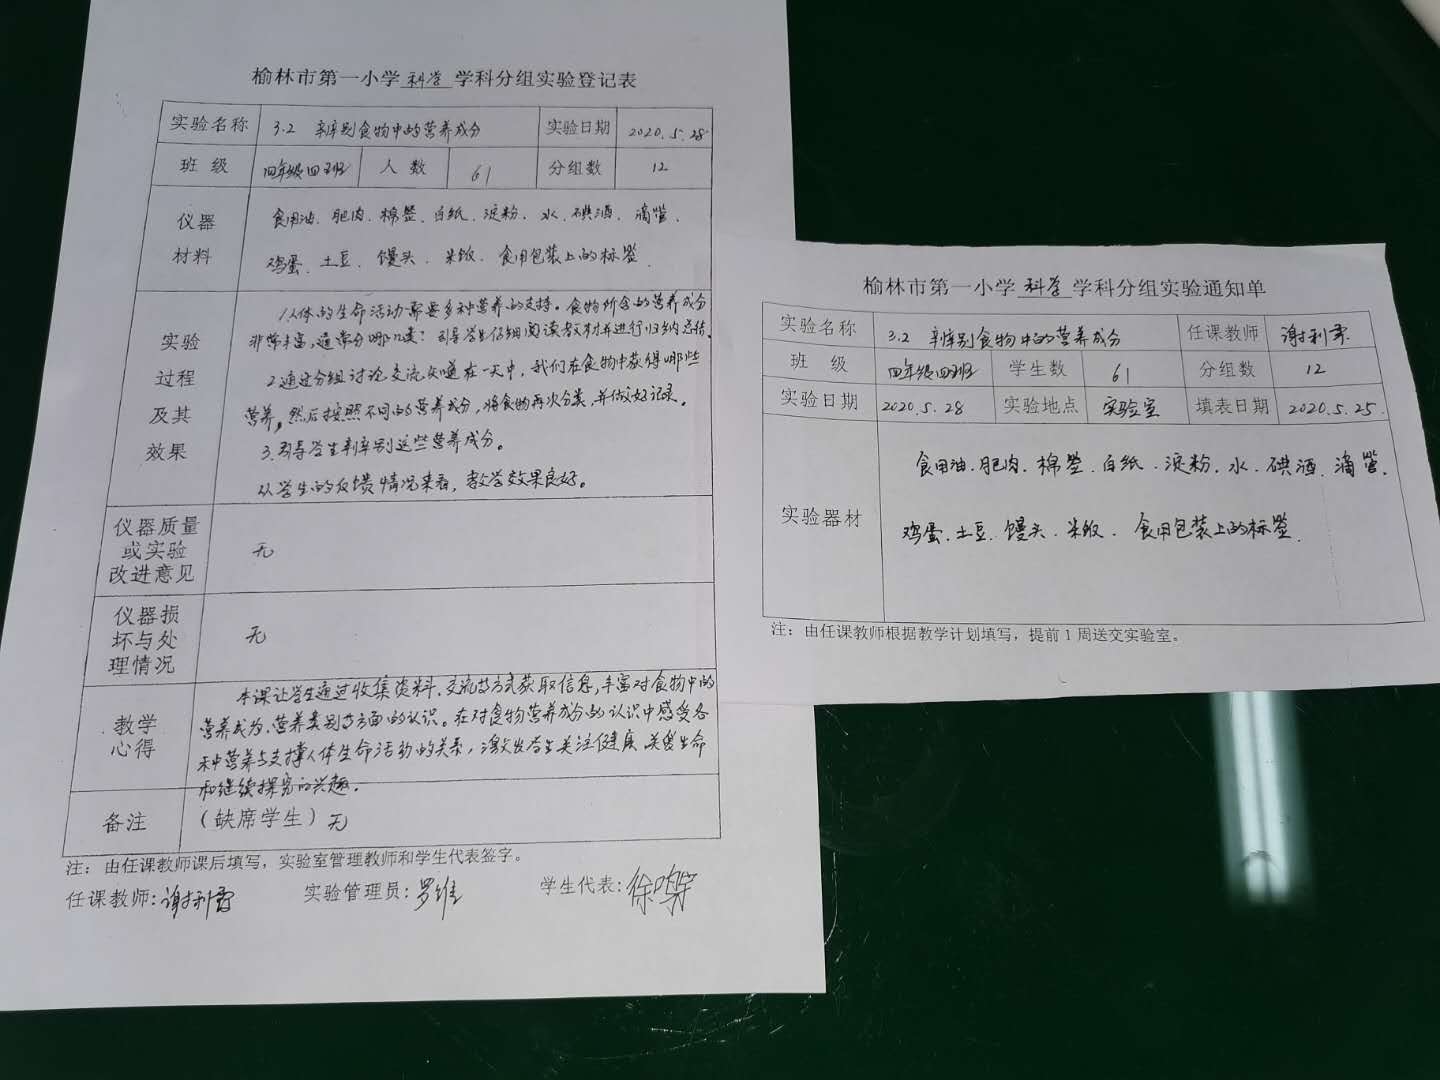 榆林市第一小学 科学 学科分组实验登记表
实验名称 3.2 辨别食物中的营养成分 实验日期 2020.5.28
班 级 四年级四班 人 数 61 分组数 12
仪器材料
食用油、肥肉、棉签、白纸、淀粉、水、碘酒、滴管、
鸡蛋、土豆、馒头、米饭、食用包装上的标签
实验过程及其效果
1.人体的生命活动需要多种营养的支持。食物所含的营养成分
非常丰富,通常分哪几类?引导学生仔细阅读教材并进行归纳总结。
2.通过分组讨论交流知道在一天中,我们在食物中获得哪些
营养,然后按照不同的营养成分,将食物再次分类,并做好记录。
3.引导学生辨别这些营养成分。
从学生的反馈情况来看,教学效果良好。
仪器质量或实验改进意见 无
仪器损坏与处理情况 无
教学心得
本课让学生通过收集资料、交流等方式获取信息,丰富对食物中的
营养成为、营养类别等方面的认识。在对食物营养成分的认识中感受各
种营养与支撑人体生命活动的关系,激发学生关注健康、关爱生命
和继续探究的兴趣。
备注 (缺席学生) 无
注:由任课教师课后填写,实验室管理教师和学生代表签字。
任课教师:谢利 实验管理员:罗维 学生代表:徐
榆林市第一小学 科学 学科分组实验通知单
实验名称 3.2 辨别食物中的营养成分 任课教师 谢利
班 级 四年级四班 学生数 61 分组数 12
实验日期 2020.5.28 实验地点 实验室 填表日期 2020.5.25.
实验器材
食用油、肥肉、棉签、白纸、淀粉、水、碘酒、滴管、
鸡蛋、土豆、馒头、米饭、食用包装上的标签.
注:由任课教师根据教学计划填写,提前1周送交实验室。